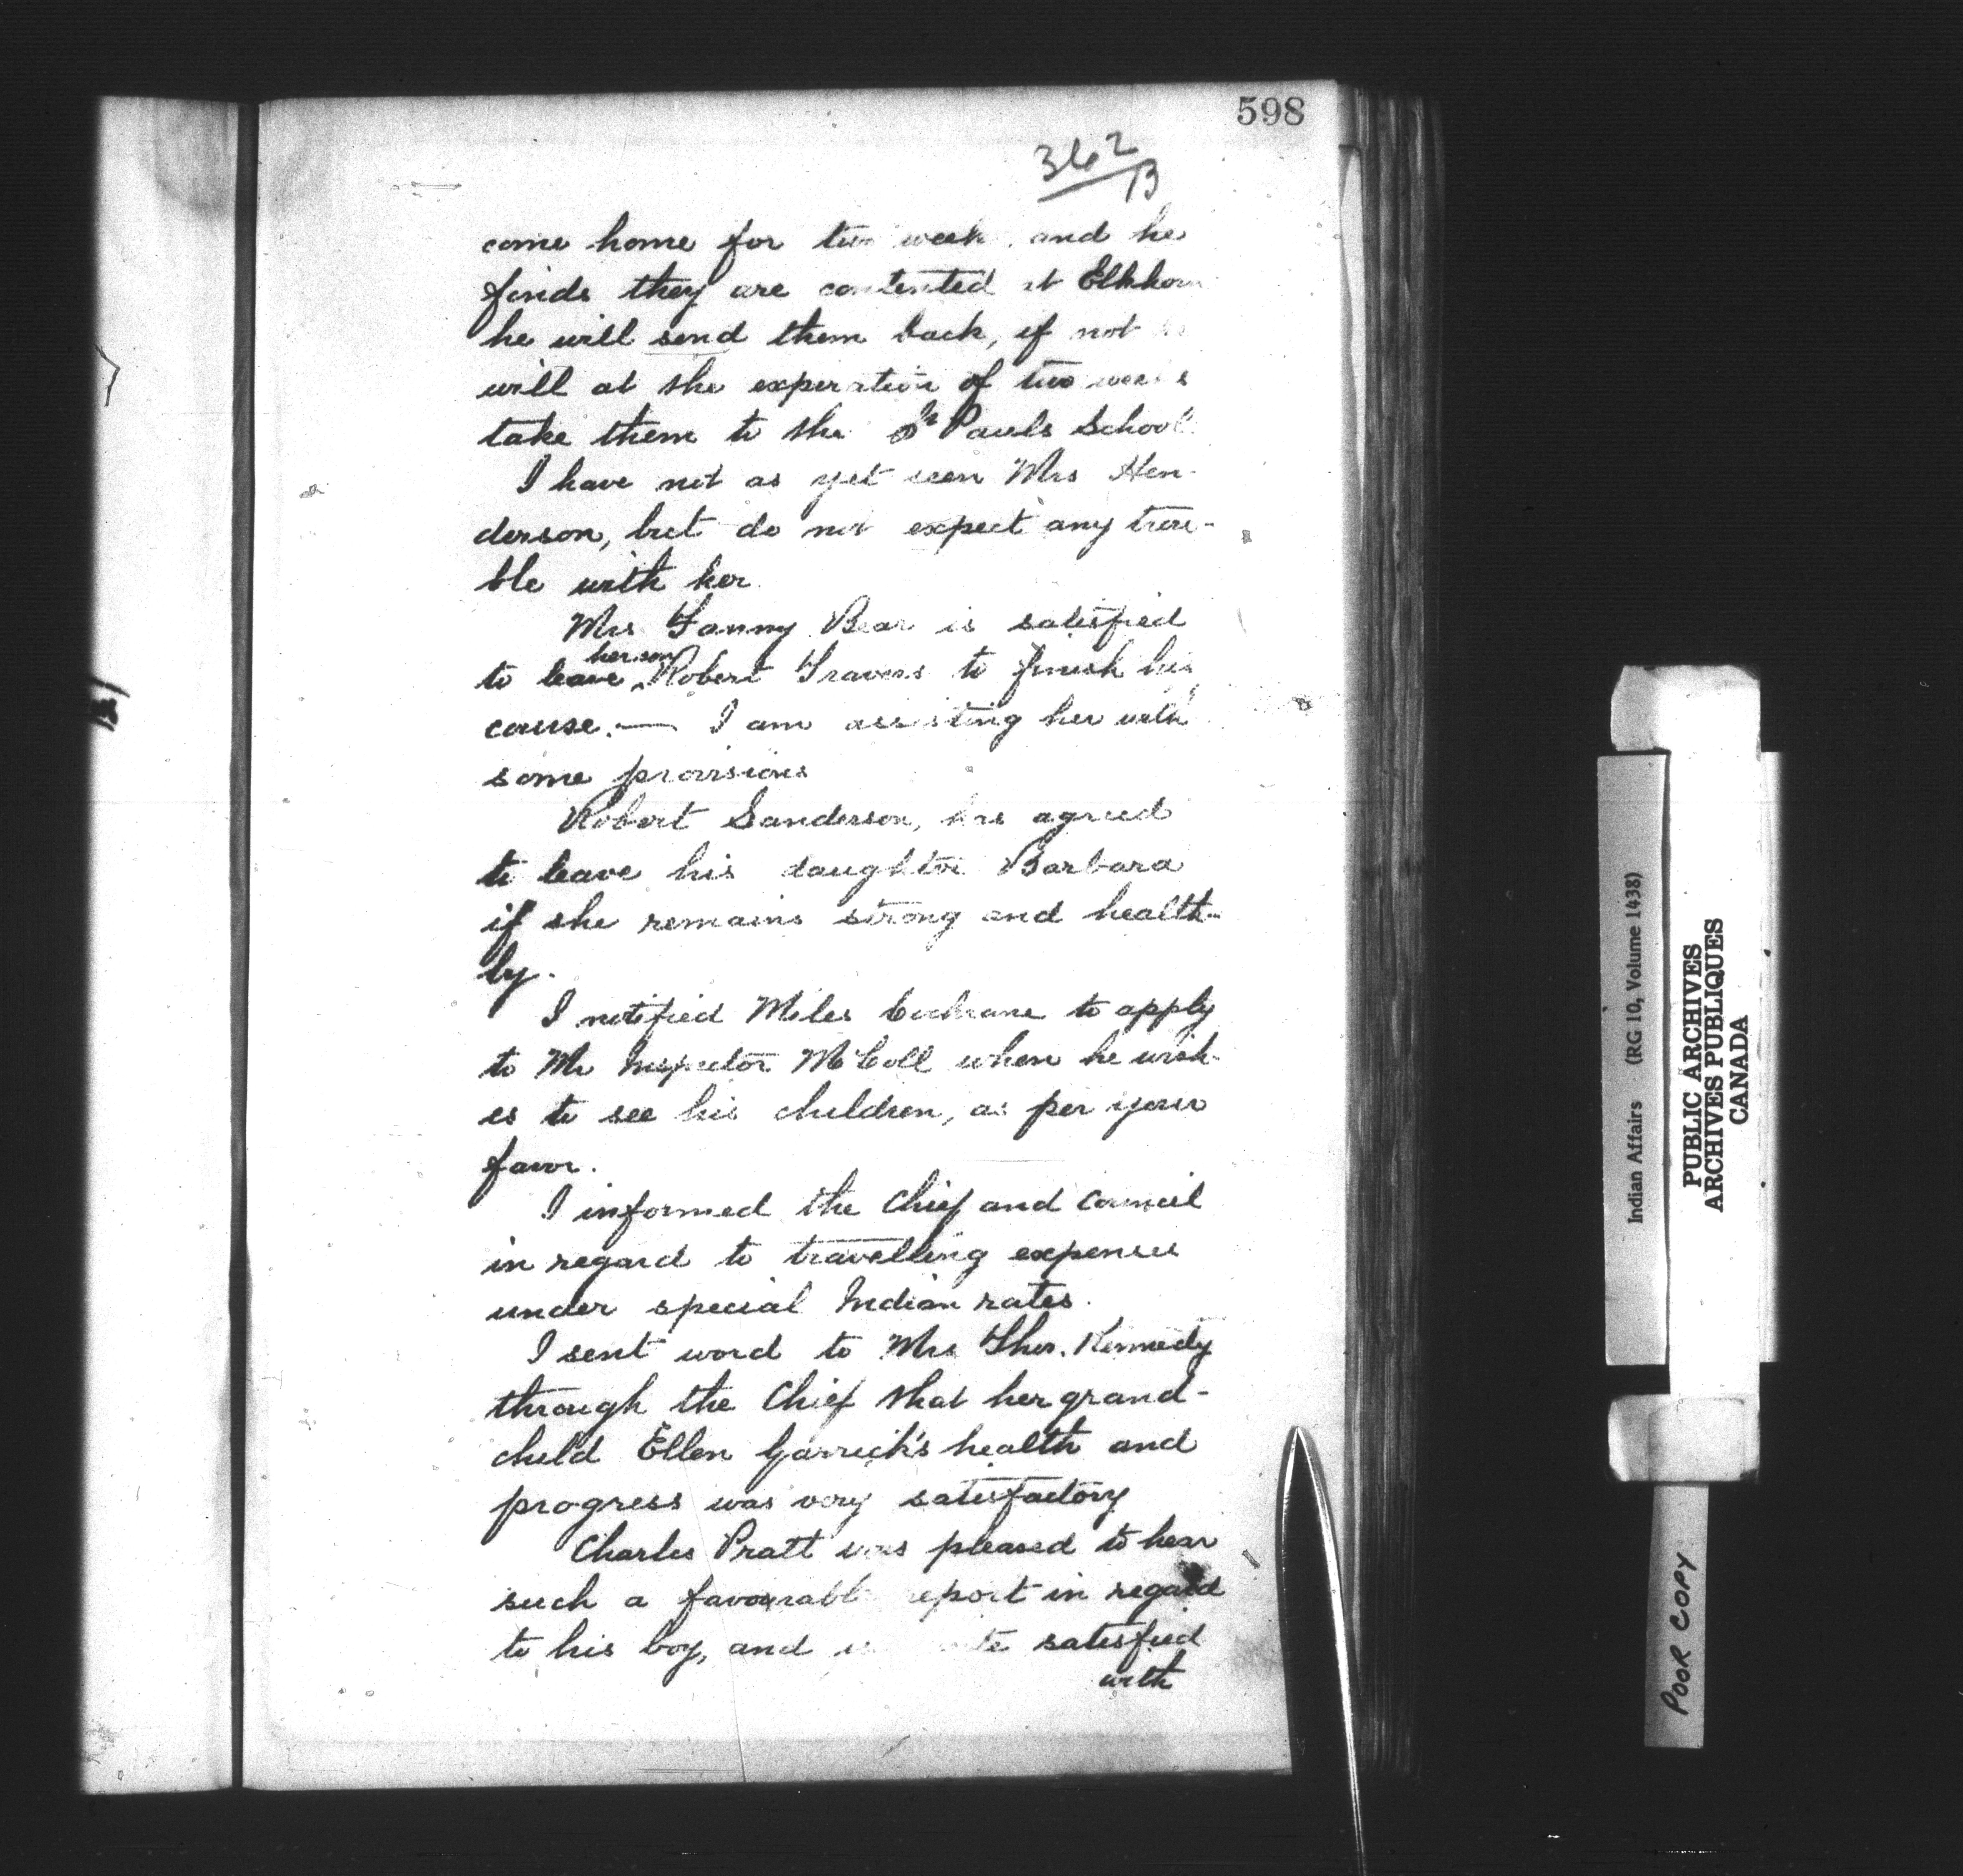 598
362/B
come home for two week and he
finds they are contented at Elkhorn
he will send them back, if not
will at the experation of two weeks
take them to the St Pauls School
I have not as yet seen Mrs Hen-
derson, but do not expect any trou-
ble with her
Mrs Fanny Bear is satisfied
to leave her son Robert Travers to finish his
couse. — I am assisting her with
some provisions
Robert Sanderson, has agreed
to leave his daughter Barbara
if she remains strong and health-
ly.
I notified Miles Cochrane to apply
to Mr Inspector McColl when he wish-
es to see his children, as per your
favor.
I informed the Chief and Council
in regard to travelling expenses
under special Indian rates.
I sent word to Mrs Thos. Kennedy
through the Chief that her grand-
child Ellen Garrick's health and
progress was very satisfactory
Charles Pratt was pleased to hear
such a favourable report in regard
to his boy, and satisfied
with
Indian Affairs (RG 10, Volume 1438)
PUBLIC ARCHIVES
ARCHIVES PUBLIQUES
CANADA
POOR COPY